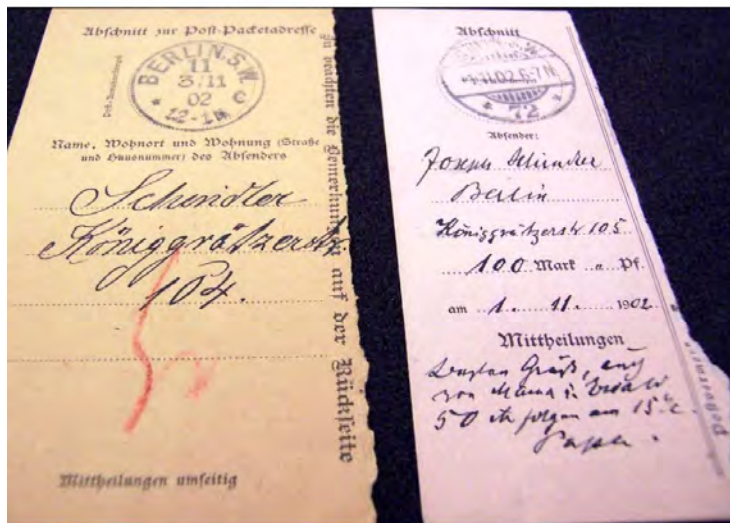 Abschnitt zur Post-Packetadresse
BERLIN. S.W.
11
3/11
02
12-1N.
* c
Name, Wohnort und Wohnung (Straße
und Hausnummer) des Absenders
Schindler
Königgrätzerstr.
104.
Mittheilungen umseitig
Zu beachten die Bemerkungen auf der Rückseite
Abschnitt
11.02.6-7N.
* 72
Absender:
Joseph
Berlin
Königgrätzerstr 105
100 Mark Pf.
am 1. 11. 1902
Mittheilungen
Gruß, auch
von Mama
50 folgen am 15.
Papa.